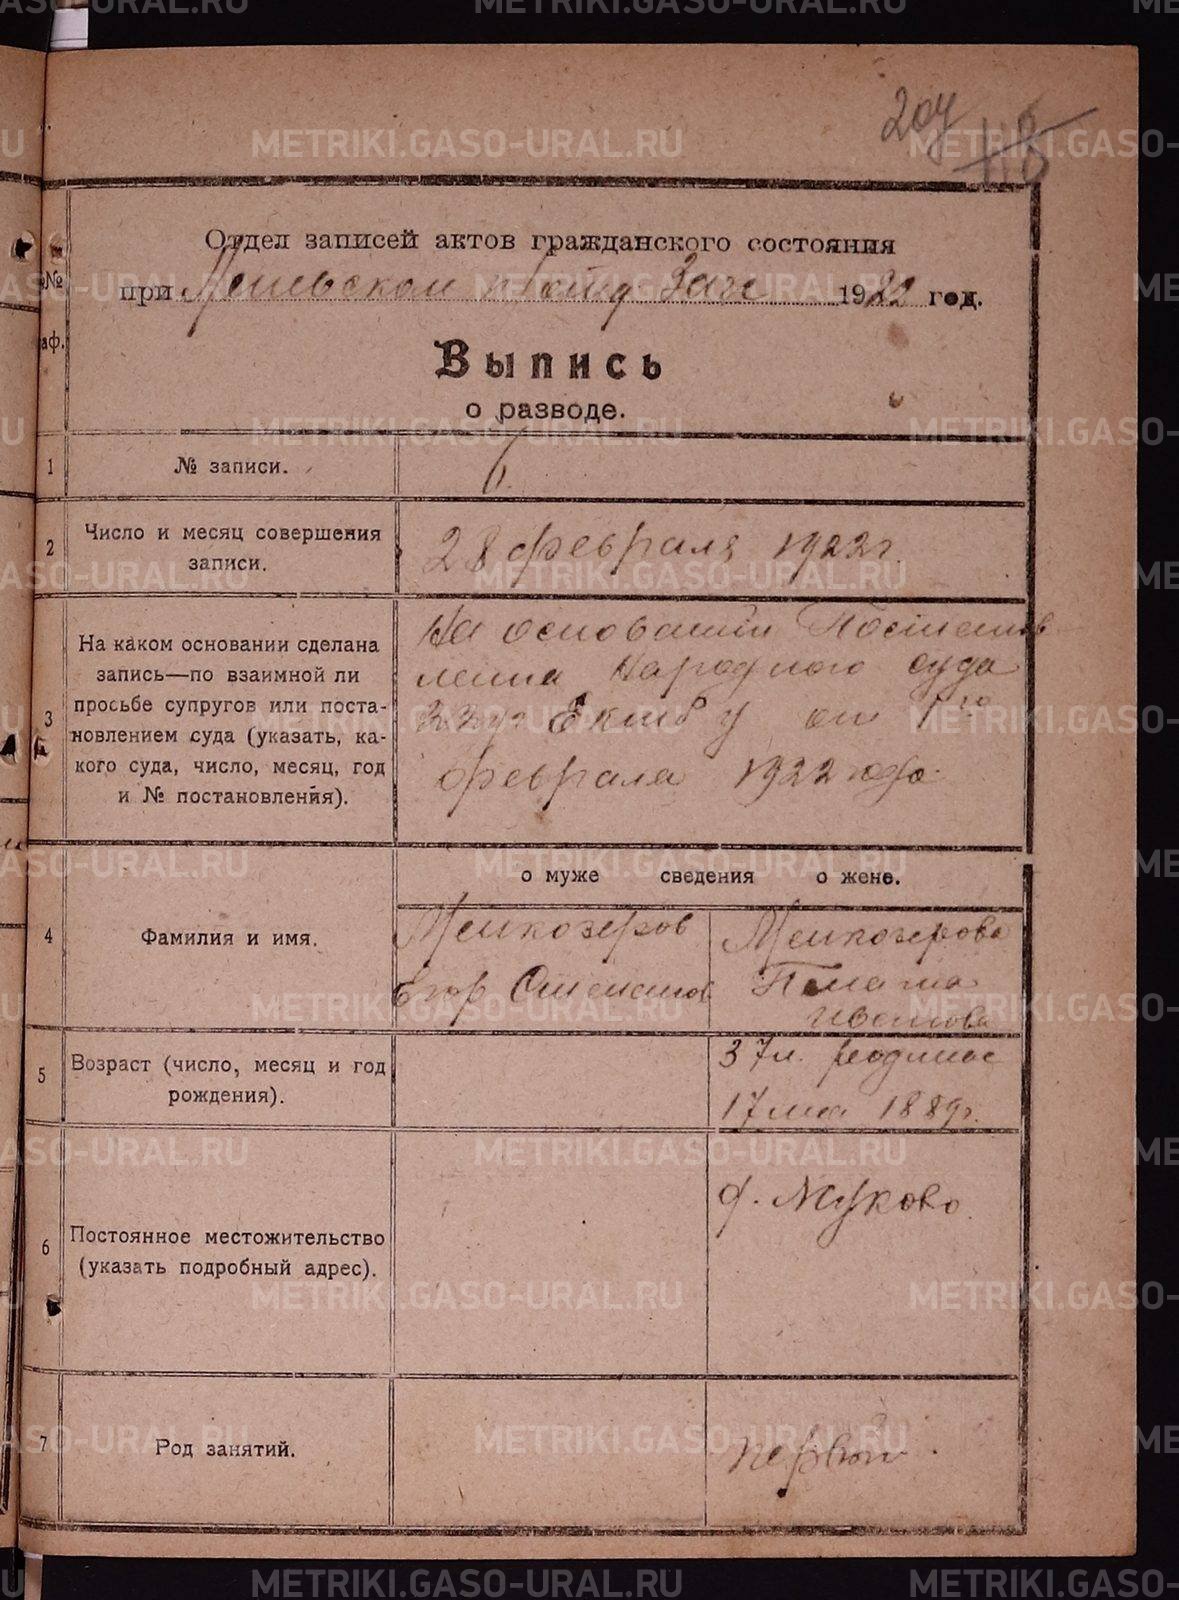 204 118
Отдел записей актов гражданского состояния
при 1922 год.
Выпись
о разводе.
№
аф.
1 № записи. 6.
2 Число и месяц совершения
записи.
28 февраля 1922 г
3 На каком основании сделана
запись—по взаимной ли
просьбе супругов или поста-
новлением суда (указать, ка-
кого суда, число, месяц, год
и № постановления).
На основании Постанов
ления Народного суда
от 1го
февраля 1922 года.
о муже сведения о жене.
4 Фамилия и имя.
Мелкозеров
Егор Степанов
Мелкозерова
Иванова
5 Возраст (число, месяц и год
рождения).
37 л. родилас
17 мая 1889 г.
6 Постоянное местожительство
(указать подробный адрес).
д. Муково
7 Род занятий.
первый
METRIKI.GASO-URAL.RU